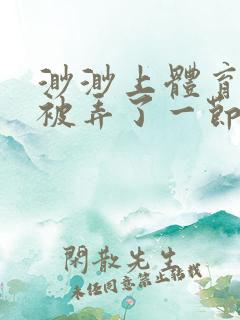 渺渺上體育
被弄了一節
閑散先生
未经同意禁止转载